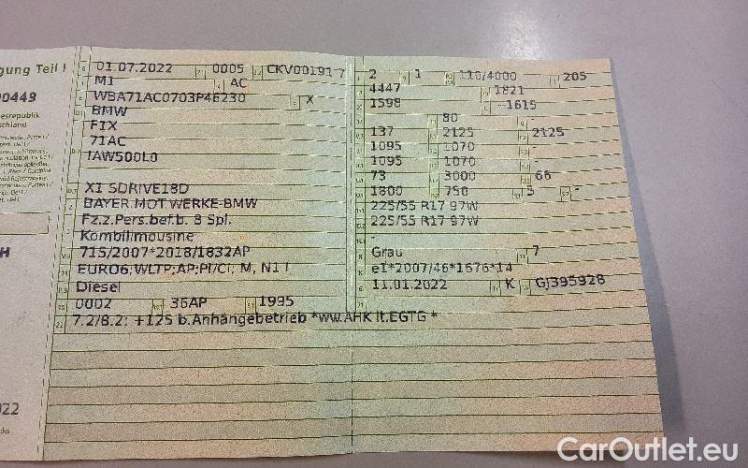 gung Teil I
0449
esrepublik
chland
01.07.2022 0005 CKV00191 7
M1 AC
WBA71AC0703P46230 X
BMW
F1X
71AC
IAW500L0
X1 SDRIVE18D
BAYER.MOT.WERKE-BMW
Fz.z.Pers.bef.b. 8 Spl.
Kombilimousine
715/2007*2018/1832AP
EURO6;WLTP;AP;PI/CI, M, N1 I
Diesel
0002 36AP 1995
7.2/8.2: +125 b.Anhängebetrieb *ww.AHK lt.EGTG *
2 1 110/4000 205
4447 1821
1598 --1615
- 80 -
137 2125 2125
1095 1070 -
1095 1070 -
73 3000 66
1800 750 5 -
225/55 R17 97W
225/55 R17 97W
-
Grau 7
e1*2007/46*1676*14
11.01.2022 K GJ395928
H
022
CarOutlet.eu